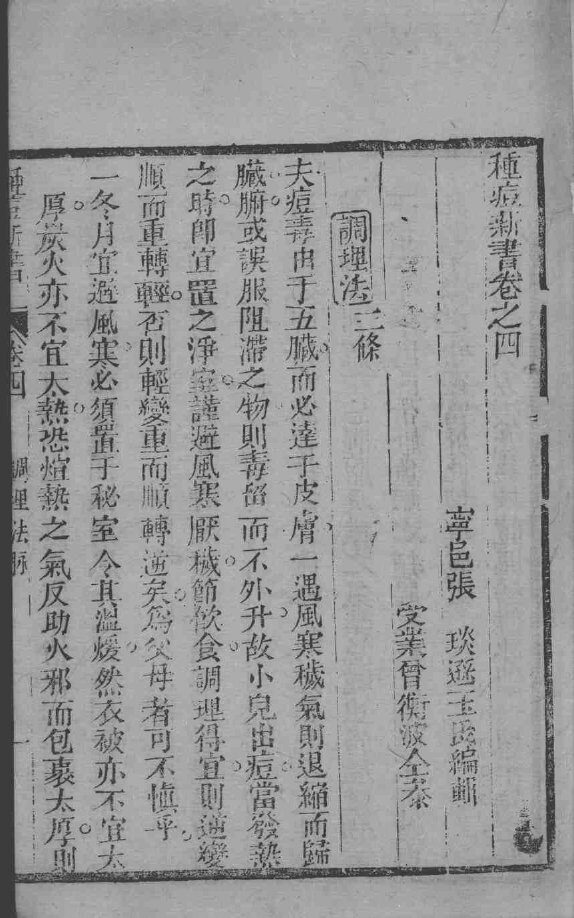 種痘新書卷之四
寧邑張 琰遜玉氏編輯
受業曾衡波仝參
調理法三條
夫痘毒由于五臟而必達于皮膚一遇風寒穢氣則退縮而歸
臟腑或誤服阻滯之物則毒留而不外升故小兒出痘當發熱
之時卽宜置之淨室謹避風寒厭穢節飲食調理得宜則逆變
順而重轉輕否則輕變重而順轉逆矣為父母者可不慎乎
一冬月宜避風寒必須置于秘室令其溫煖然衣被亦不宜太
厚炭火亦不宜太熱恐煊熱之氣反助火邪而包裹太厚則
種痘新書 卷四 調理法 一